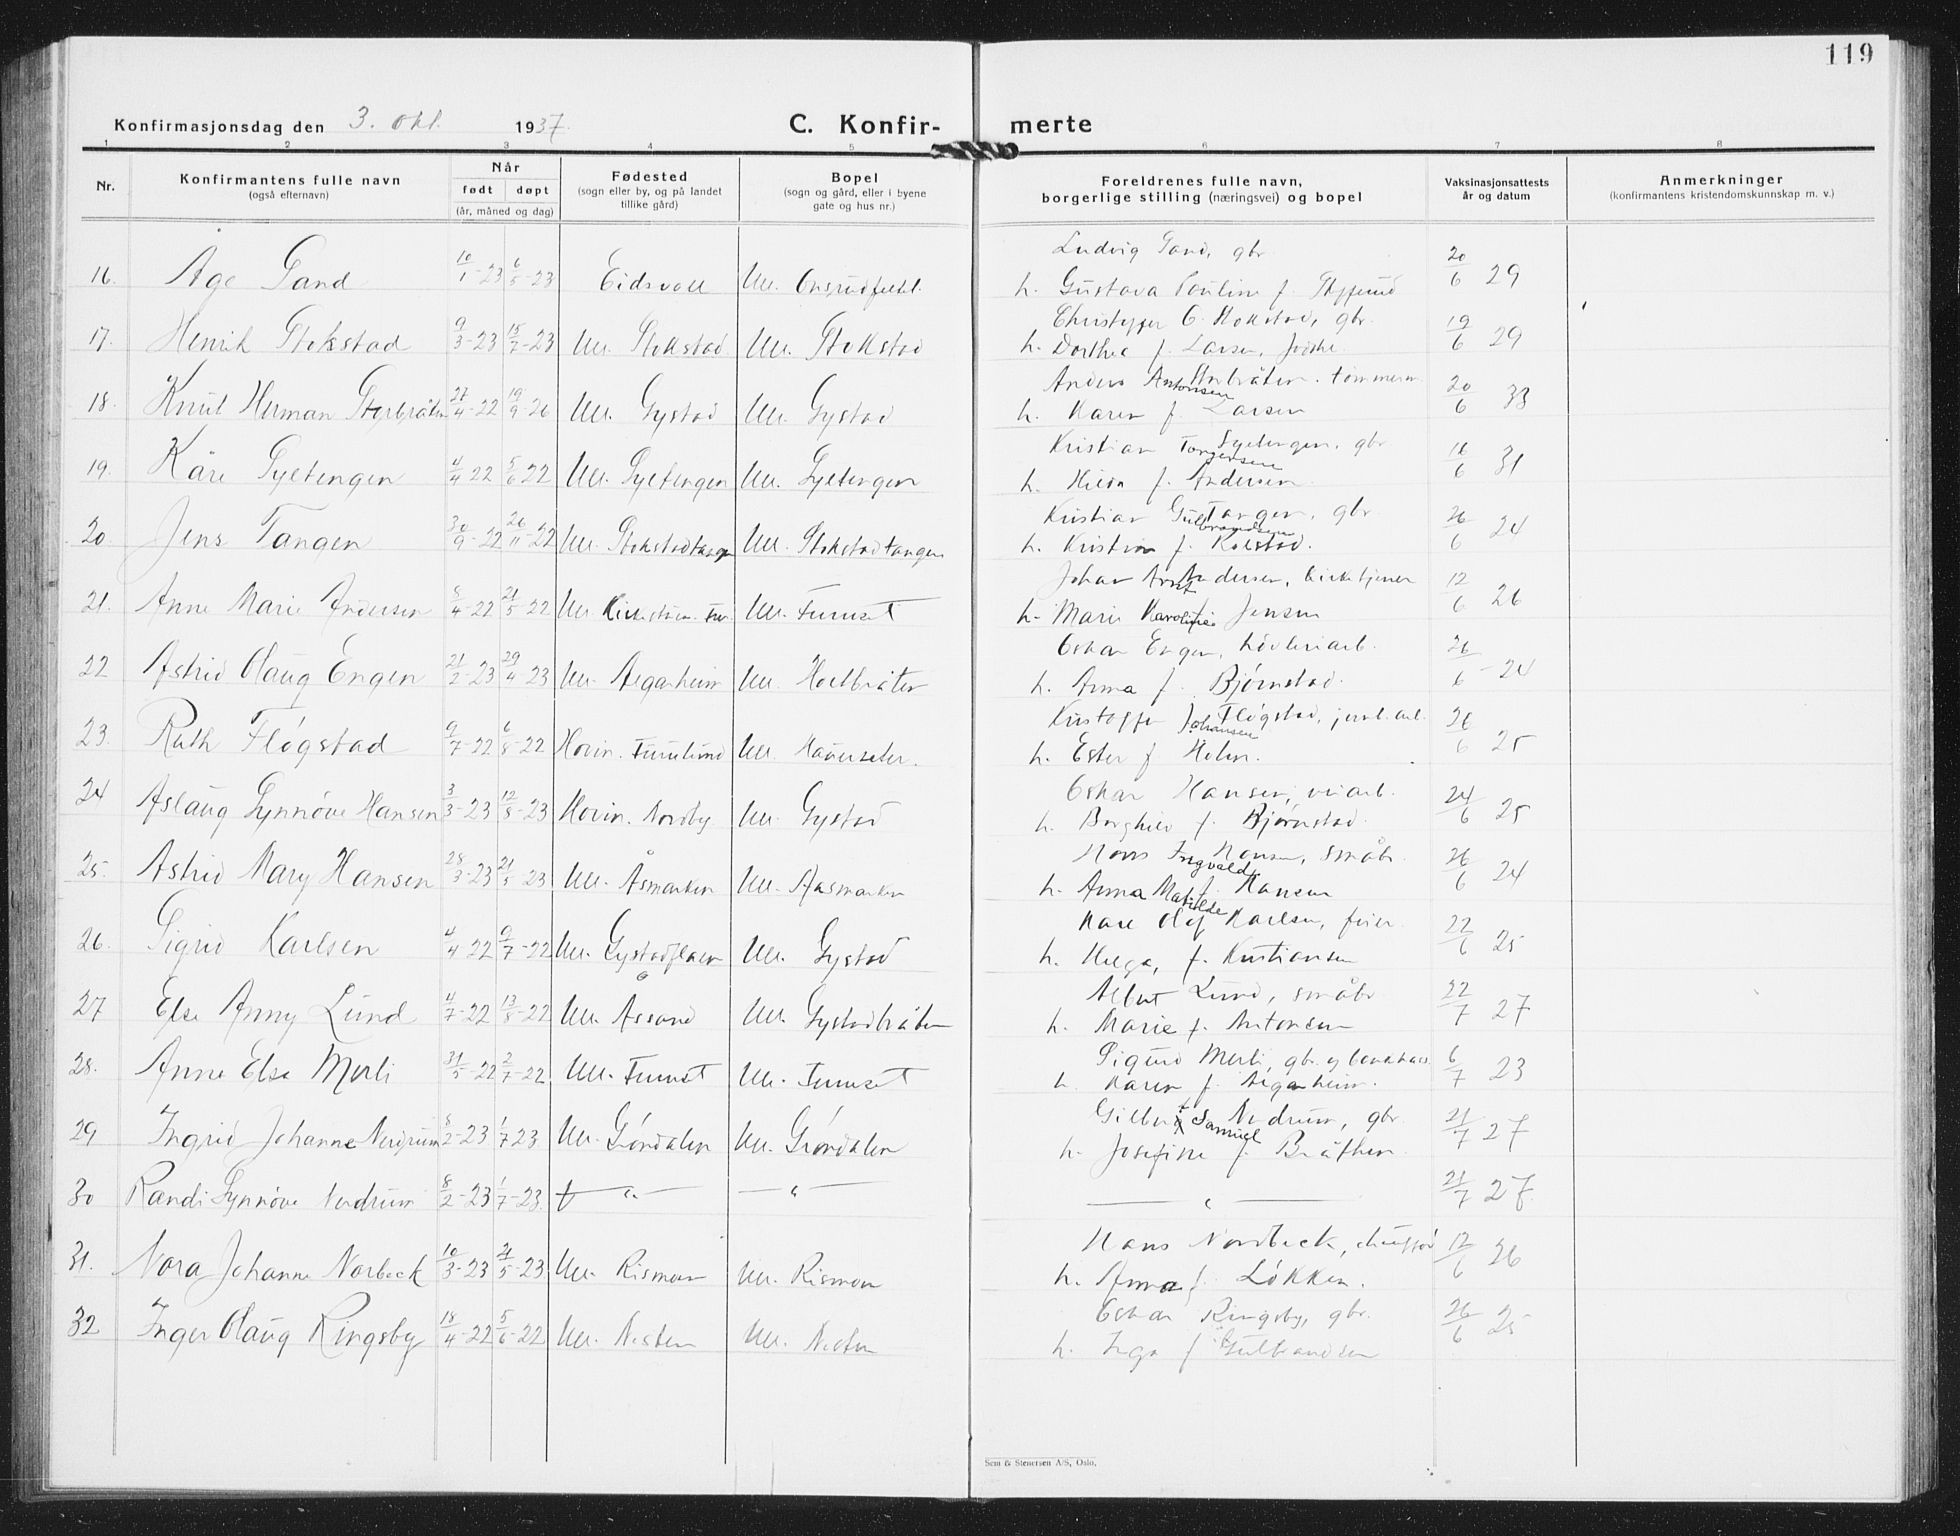 119
Konfirmasjonsdag den 3. okt. 1937.
C. Konfir- merte
1 2 3 4 5 6 7 8
Nr.
Konfirmantens fulle navn
(også efternavn)
Når
født døpt
(år, måned og dag)
Fødested
(sogn eller by, og på landet
tillike gård)
Bopel
(sogn og gård, eller i byene
gate og hus nr.)
Foreldrenes fulle navn,
borgerlige stilling (næringsvei) og bopel
Vaksinasjonsattests
år og datum
Anmerkninger
(konfirmantens kristendomskunnskap m. v.)
Ludvig Sand, gbr.
16. Åge Sand 10/1-23 6/5-23 Eidsvoll Ull. h. Gustava Pauline f. 20/6 29
Christoffer O. Stokstad, gbr.
17. Henrik Stokstad 9/3-23 15/7-23 Ull. Stokstad Ull. Stokstad h. Dorthea f. Larsen, 19/6 29
Anders Antonsen Storbråten. tømmerm.
18. Knut Herman Storbråten 27/4-22 19/9-26 Ull. Gystad Ull. Gystad h. Karen f. Larsen 20/6 33
Kristian Torgersen Syltengen, gbr
19. Kåre Syltengen 4/4 22 5/6 22 Ull. Syltengen Ull. Syltengen h. Hilda f. Andersen 16/6 31
Kristian Gulbrandsen Tangen, gbr.
20. Jens Tangen 30/9-22 26/11-22 Ull. Stokstadtangen Ull. Stokstadtangen h. Kristine f. Kolstad. 26/6 24
Johan Arnt Andersen, kirketjener
21. Anne Marie Andersen 8/4-22 21/5-22 Ull. Ull. Furuset h. Marie Karoline f. Jensen 12/6 26
Oskar Engen, høvleriarb.
22 Astrid Olaug Engen 21/2-23 29/4-23 Ull. Algarheim Ull. Holtbråten h. Anna f. Bjørnstad. 26/6-24
Kristoffer Johansen Fløgstad, jernb.arb.
23. Ruth Fløgstad 9/7-22 6/8-22 Hovin. Furulund Ull. Hauerseter. h. Ester f. Holm. 26/6 25
Oskar Hansen, veiarb.
24 Aslaug Synnøve Hansen 3/3-23 12/8-23 Hovin. Nordby Ull. Gystad h. Borghild f. Bjørnstad. 24/6 25
Hans Ingvald Hansen, småbr.
25. Astrid Mary Hansen 28/3-23 21/5-23 Ull. Åsmarken Ull. Aasmarken h. Anna Matilde f. Hansen 26/6 24
Karl Olaf Karlsen, feier.
26. Sigrid Karlsen 4/4-22 9/7-22 Ull. Gystadflaen Ull. Gystad h. Helga, f. Kristiansen 22/6 25
Albert Lund, småbr
27 Else Anny Lund 4/7-22 13/8-22 Ull. Åssand Ull. Gystadbråten h. Marie f. Antonsen 22/7 27
Sigurd Merli, gbr. og bankkass.
28. Anne Else Merli 31/5-22 2/7-22 Ull. Furuset Ull. Furuset h. Karen f. Algarheim. 6/7 23
Gilbert Samuel Nerdrum, gbr.
29 Ingrid Johanne Nerdrum 8/2-23 1/7 23. Ull. Grøndalen Ull. Grøndalen h. Josefine f. Bråthen. 21/7 27
30 Randi Synnøve Nerdrum 8/2-23 1/7-23. — " — — " — — " — 21/7 27.
Hans Nordbeck, chauffør
31. Nora Johanne Norbeck 10/3-23 21/5-23 Ull. Rismoen Ull. Rismoen h. Anna f. Løkken. 12/6 26
Oskar Ringsby, gbr.
32 Inger Olaug Ringsby 18/4-22 5/6-22 Ull. Nesten Ull. Nesten h. Inga f. Gulbrandsen 26/6 25
Sem & Stenersen A/S, Oslo.